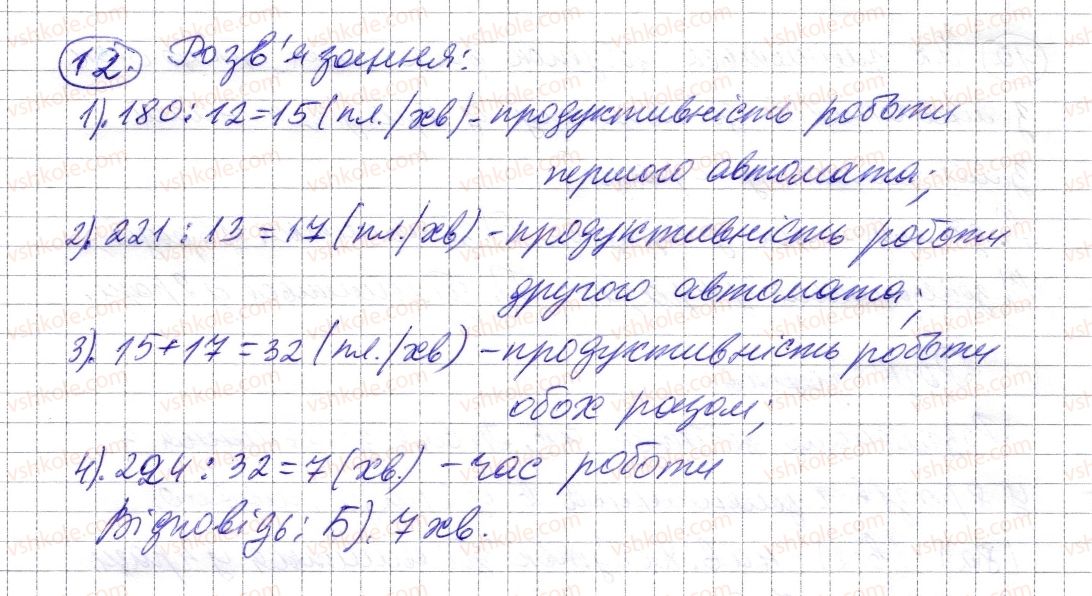 12. Розв'язання:
1). 180 : 12 = 15 (пл./хв) - продуктивність роботи
першого автомата;
2). 221 : 13 = 17 (пл./хв) - продуктивність роботи
другого автомата;
3). 15 + 17 = 32 (пл./хв) - продуктивність роботи
обох разом;
4). 224 : 32 = 7 (хв.) - час роботи
Відповідь: Б). 7 хв.